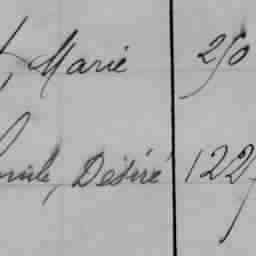 , Marie 250
, Désiré 1227